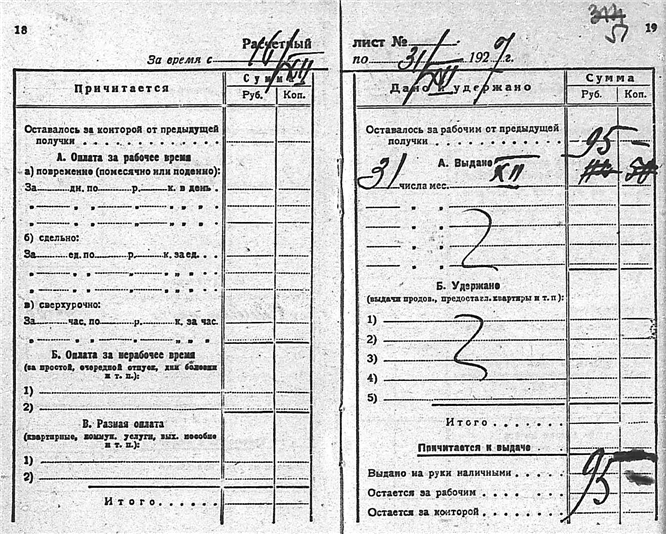 18
Расчетный
За время с 16/XII
Причитается
Сумма
Руб.
Коп.
Оставалось за конторой от предыдущей
получки
А. Оплата за рабочее время
а) повременно (помесячно или поденно):
За ди. по р. к. в день.
" " " " "
б) сдельно:
За ед. по р. к. за ед.
" " " " "
" " " " "
в) сверхурочно:
За час. по р. к. за час.
" " " " "
Б. Оплата за нерабочее время
(за простой, очередной отпуск, дни болезни
и т. п.):
1)
2)
В. Разная оплата
(квартирные, коммун. услуги, вых. пособие
и т. п.):
1)
2)
Итого
19
лист №
по 31/XII 1927 г.
Дано и удержано
Сумма
Руб.
Коп.
Оставалось за рабочим от предыдущей
получки 95 —
А. Выдано
31 числа мес. XII
" "
" "
" "
" "
Б. Удержано
(выдачи продов., предостагл. квартиры и т. п):
1)
2)
3)
4)
5)
Итого
Причитается к выдаче
Выдано на руки наличными 95
Остается за рабочим
Остается за конторой